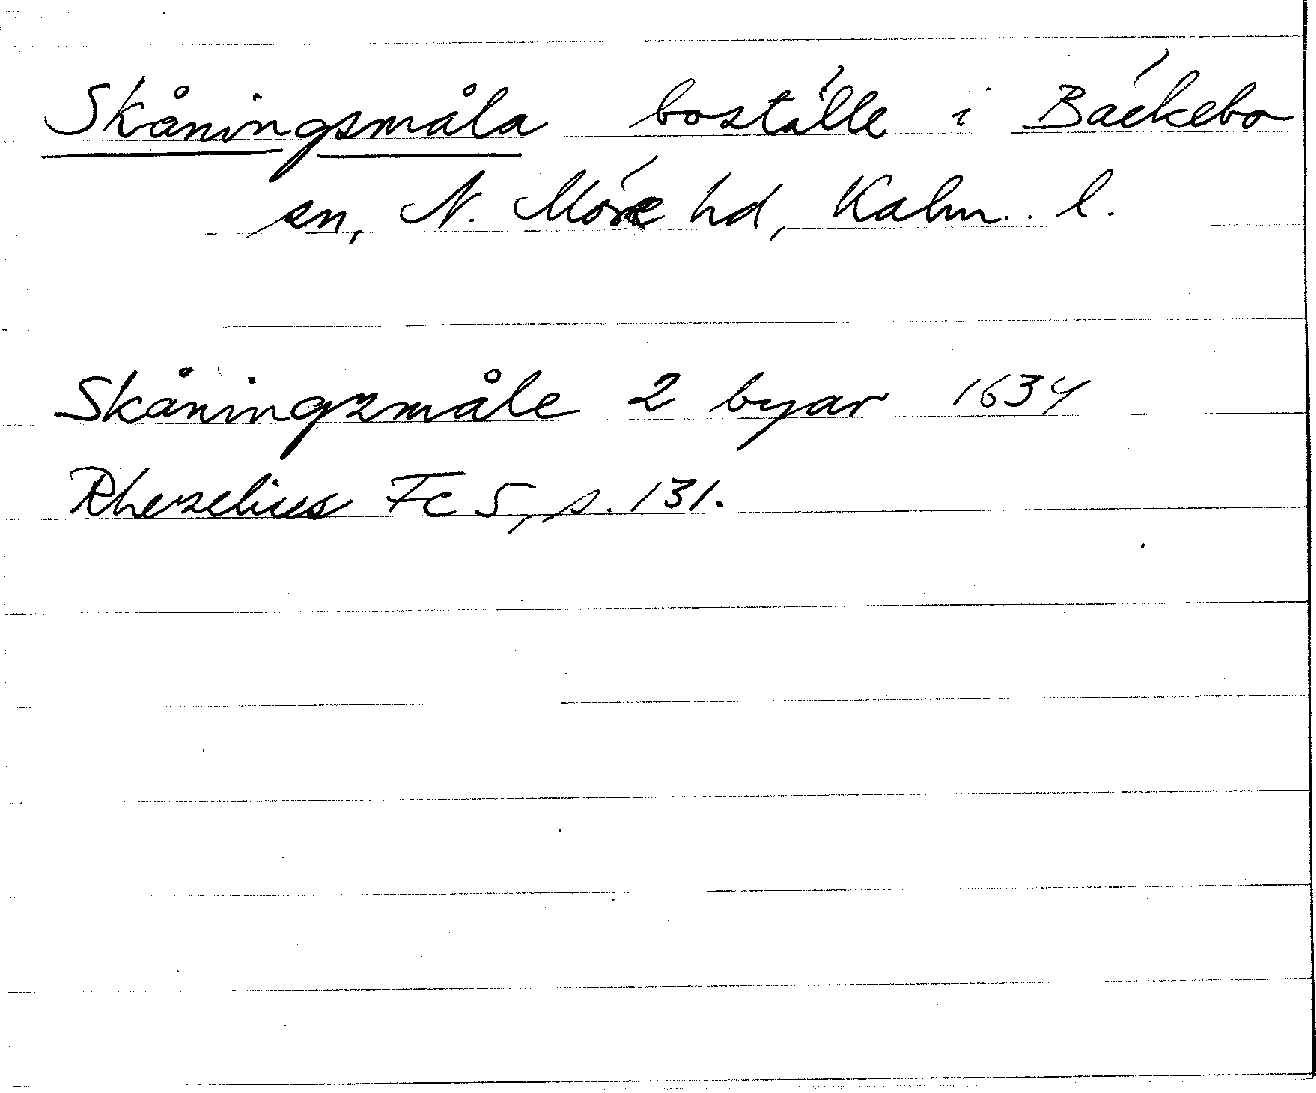 Skåningsmåla boställe i Bäckebo
sn, N. Möre hd, Kalm. l.
Skåningzmåle 2 byar 1634
Rhezelius Fc 5, s. 131.